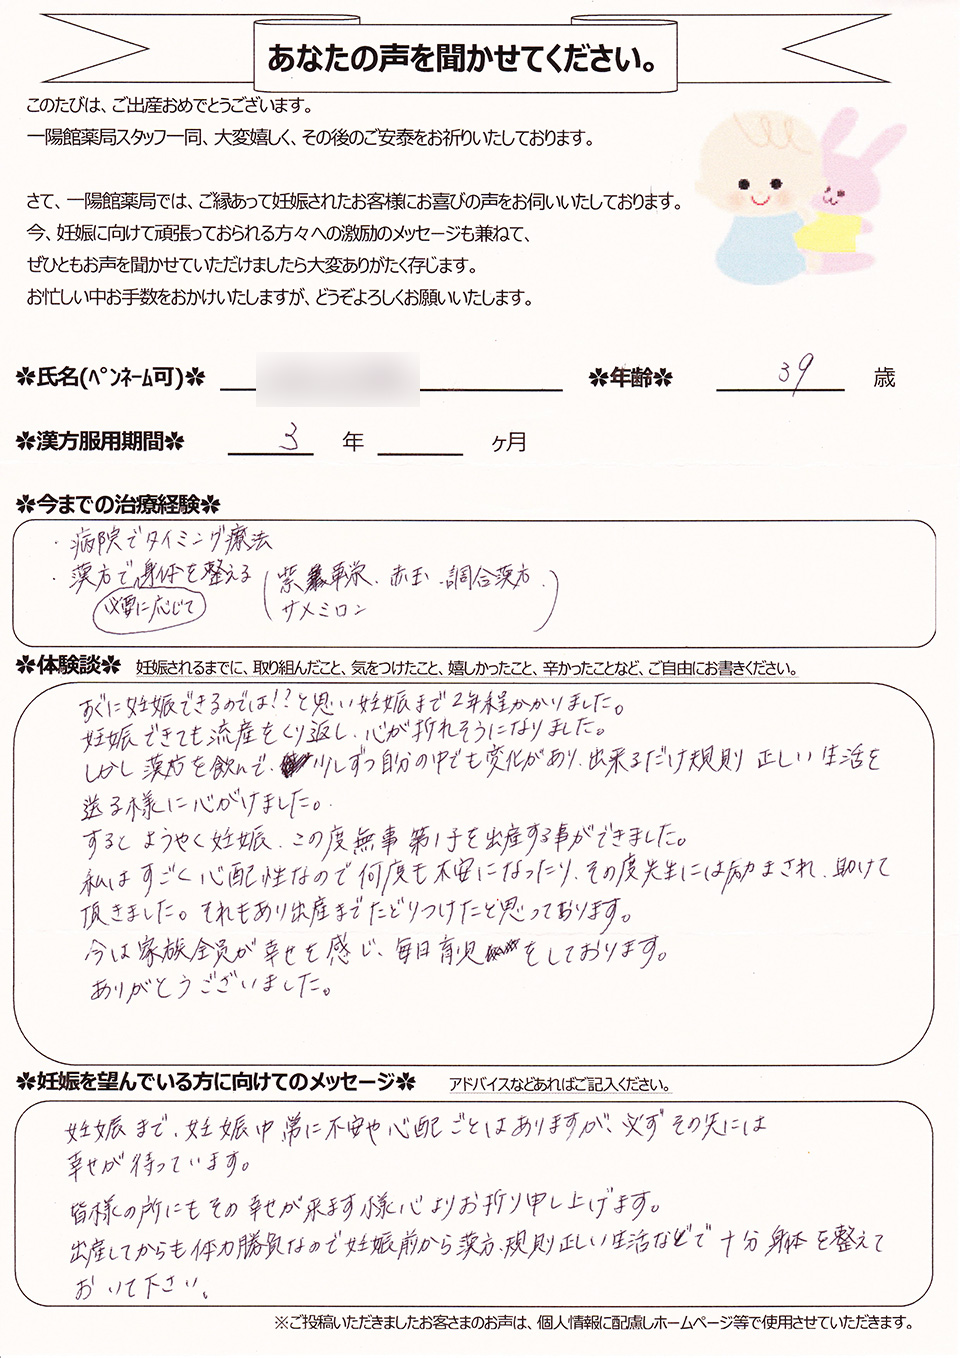 あなたの声を聞かせてください。
このたびは、ご出産おめでとうございます。
一陽館薬局スタッフ一同、大変嬉しく、その後のご安泰をお祈りいたしております。
さて、一陽館薬局では、ご縁あって妊娠されたお客様にお喜びの声をお伺いいたしております。
今、妊娠に向けて頑張っておられる方々への激励のメッセージも兼ねて、
ぜひともお声を聞かせていただけましたら大変ありがたく存じます。
お忙しい中お手数をおかけいたしますが、どうぞよろしくお願いいたします。
✽氏名(ペンネーム可)✽ ✽年齢✽ 39 歳
✽漢方服用期間✽ 3 年 ヶ月
✽今までの治療経験✽
・病院でタイミング療法
・漢方で身体を整える (紫華栄、赤玉、調合漢方、
必要に応じて サメミロン)
✽体験談✽ 妊娠されるまでに、取り組んだこと、気をつけたこと、嬉しかったこと、辛かったことなど、ご自由にお書きください。
すぐに妊娠できるのでは!?と思い妊娠まで2年程かかりました。
妊娠できても流産をくり返し、心が折れそうになりました。
しかし漢方を飲んで、少しずつ自分の中でも変化があり、出来るだけ規則正しい生活を
送る様に心がけました。
するとようやく妊娠、この度無事第1子を出産する事ができました。
私はすごく心配性なので何度も不安になったり、その度先生には励まされ、助けて
頂きました。それもあり出産までたどりつけたと思っております。
今は家族全員が幸せを感じ、毎日育児をしております。
ありがとうございました。
✽妊娠を望んでいる方に向けてのメッセージ✽ アドバイスなどあればご記入ください。
妊娠まで、妊娠中、常に不安や心配ごとはありますが、必ずその先には
幸せが待っています。
皆様の所にもその幸せが来ます様心よりお祈り申し上げます。
出産してからも体力勝負なので妊娠前から漢方、規則正しい生活などで十分身体を整えて
おいて下さい。
※ご投稿いただきましたお客さまのお声は、個人情報に配慮しホームページ等で使用させていただきます。